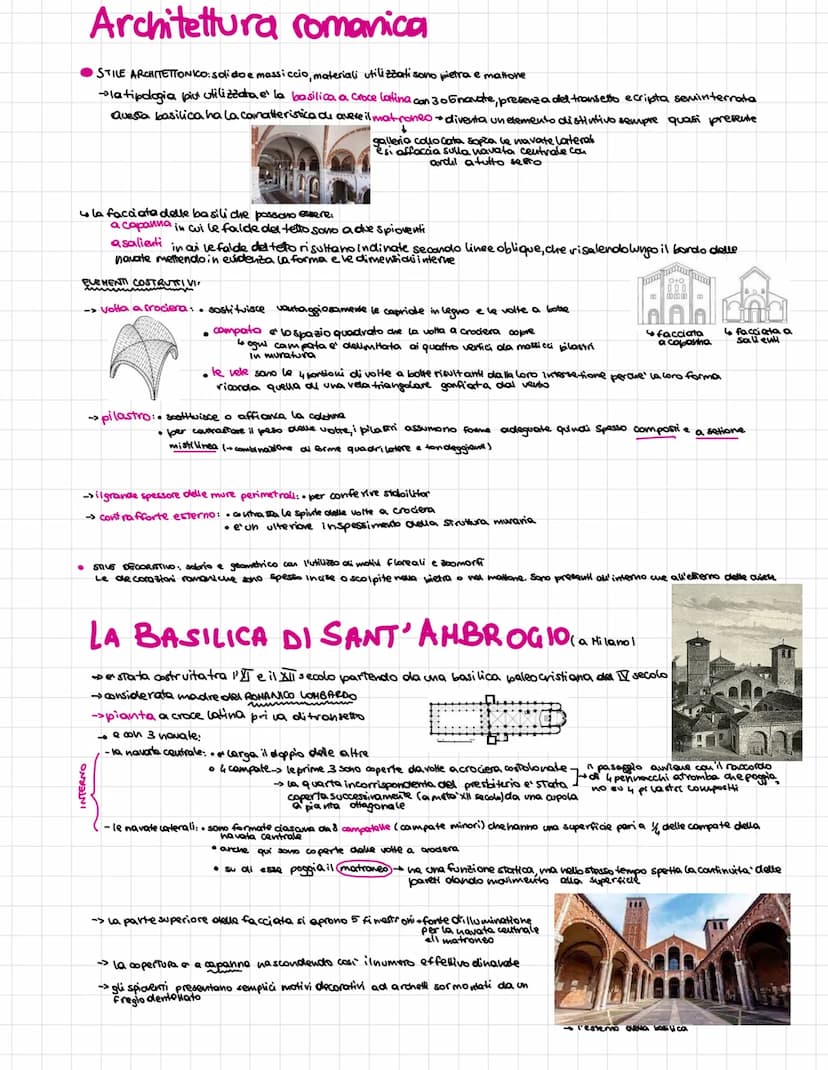 Architettura romanica
STILE ARCHITETTONICO: solido e massiccio, materiali utilizzati sono pietra e mattone
→ la tipologia più utilizzata e' la basilica a croce latina con 3 o 5 navate, presenza del transetto e cripta seminterrata
questa basilica ha la caratteristica di avere il matroneo → diventa un elemento distintivo sempre quasi presente
galleria collocata sopra le navate laterali
e si affaccia sulla navata centrale con
archi a tutto sesto
↳ la facciata delle basiliche possono essere:
a capanna in cui le falde del tetto sono a due spioventi
a salienti in cui le falde del tetto risultano inclinate secondo linee oblique, che risalendo lungo il bordo delle
navate mettendo in evidenza la forma e le dimensioni interne
ELEMENTI COSTRUTTIVI:
→ volta a crociera: • sostituisce vantaggiosamente le capriate in legno e le volte a botte
• campata e' lo spazio quadrato che la volta a crociera copre
↳ ogni campata e' delimitata ai quattro vertici da massicci pilastri
in muratura
↳ facciata
a capanna
↳ facciata a
salienti
• le vele sono le 4 porzioni di volte a botte risultanti dalla loro intersezione perche' la loro forma
ricorda quella di una vela triangolare gonfiata dal vento
→ pilastro: • sostituisce o affianca la colonna
• per contrastare il peso delle volte, i pilastri assumono forme adeguate quindi spesso composti e a sezione
mistilinea (→ combinazione di forme quadrilatere e tondeggianti)
→ il grande spessore delle mure perimetrali: • per conferire
→ contrafforte esterno: • contrasta le spinte delle volte a crociera
• e' un ulteriore inspessimento della struttura muraria
• STILE DECORATIVO: sobrio e geometrico con l'utilizzo di motivi floreali e zoomorfi
Le decorazioni romaniche sono spesso incise o scolpite nella pietra o nel mattone. Sono presenti all'interno che all'esterno delle chiese
LA BASILICA DI SANT'AMBROGIO (a Milano)
→ e' stata costruita tra l'XI e il XII secolo partendo da una basilica paleocristiana del IV secolo
→ considerata madre del ROMANICO LOMBARDO
→ pianta a croce latina priva di transetto
→ e con 3 navate:
INTERNO
- la navata centrale: • e' larga il doppio delle altre
• 4 campate → le prime 3 sono coperte da volte a crociera costolonate
→ la quarta in corrispondenza del presbiterio e' stata
coperta successivamente (a meta' XII secolo) da una cupola
a pianta ottagonale
il passaggio avviene con il raccordo
di 4 pennacchi a tromba che poggiano
su 4 pilastri compositi
- le navate laterali: • sono formate ciascuna da 8 campatelle (campate minori) che hanno una superficie pari a 1/4 delle campate della
navata centrale
• anche qui sono coperte dalle volte a crociera
• su di esse poggia il matroneo → ha una funzione statica, ma nello stesso tempo spetta la continuita' delle
pareti dando movimento alla superficie
→ la parte superiore della facciata si aprono 5 finestroni → fonte di illuminazione
per la navata centrale
e il matroneo
→ la copertura e' a capanna nascondendo cosi' il numero effettivo di navate
→ gli spioventi presentano semplici motivi decorativi ad archetti sormontati da un
fregio dentellato
→ l'esterno della basilica